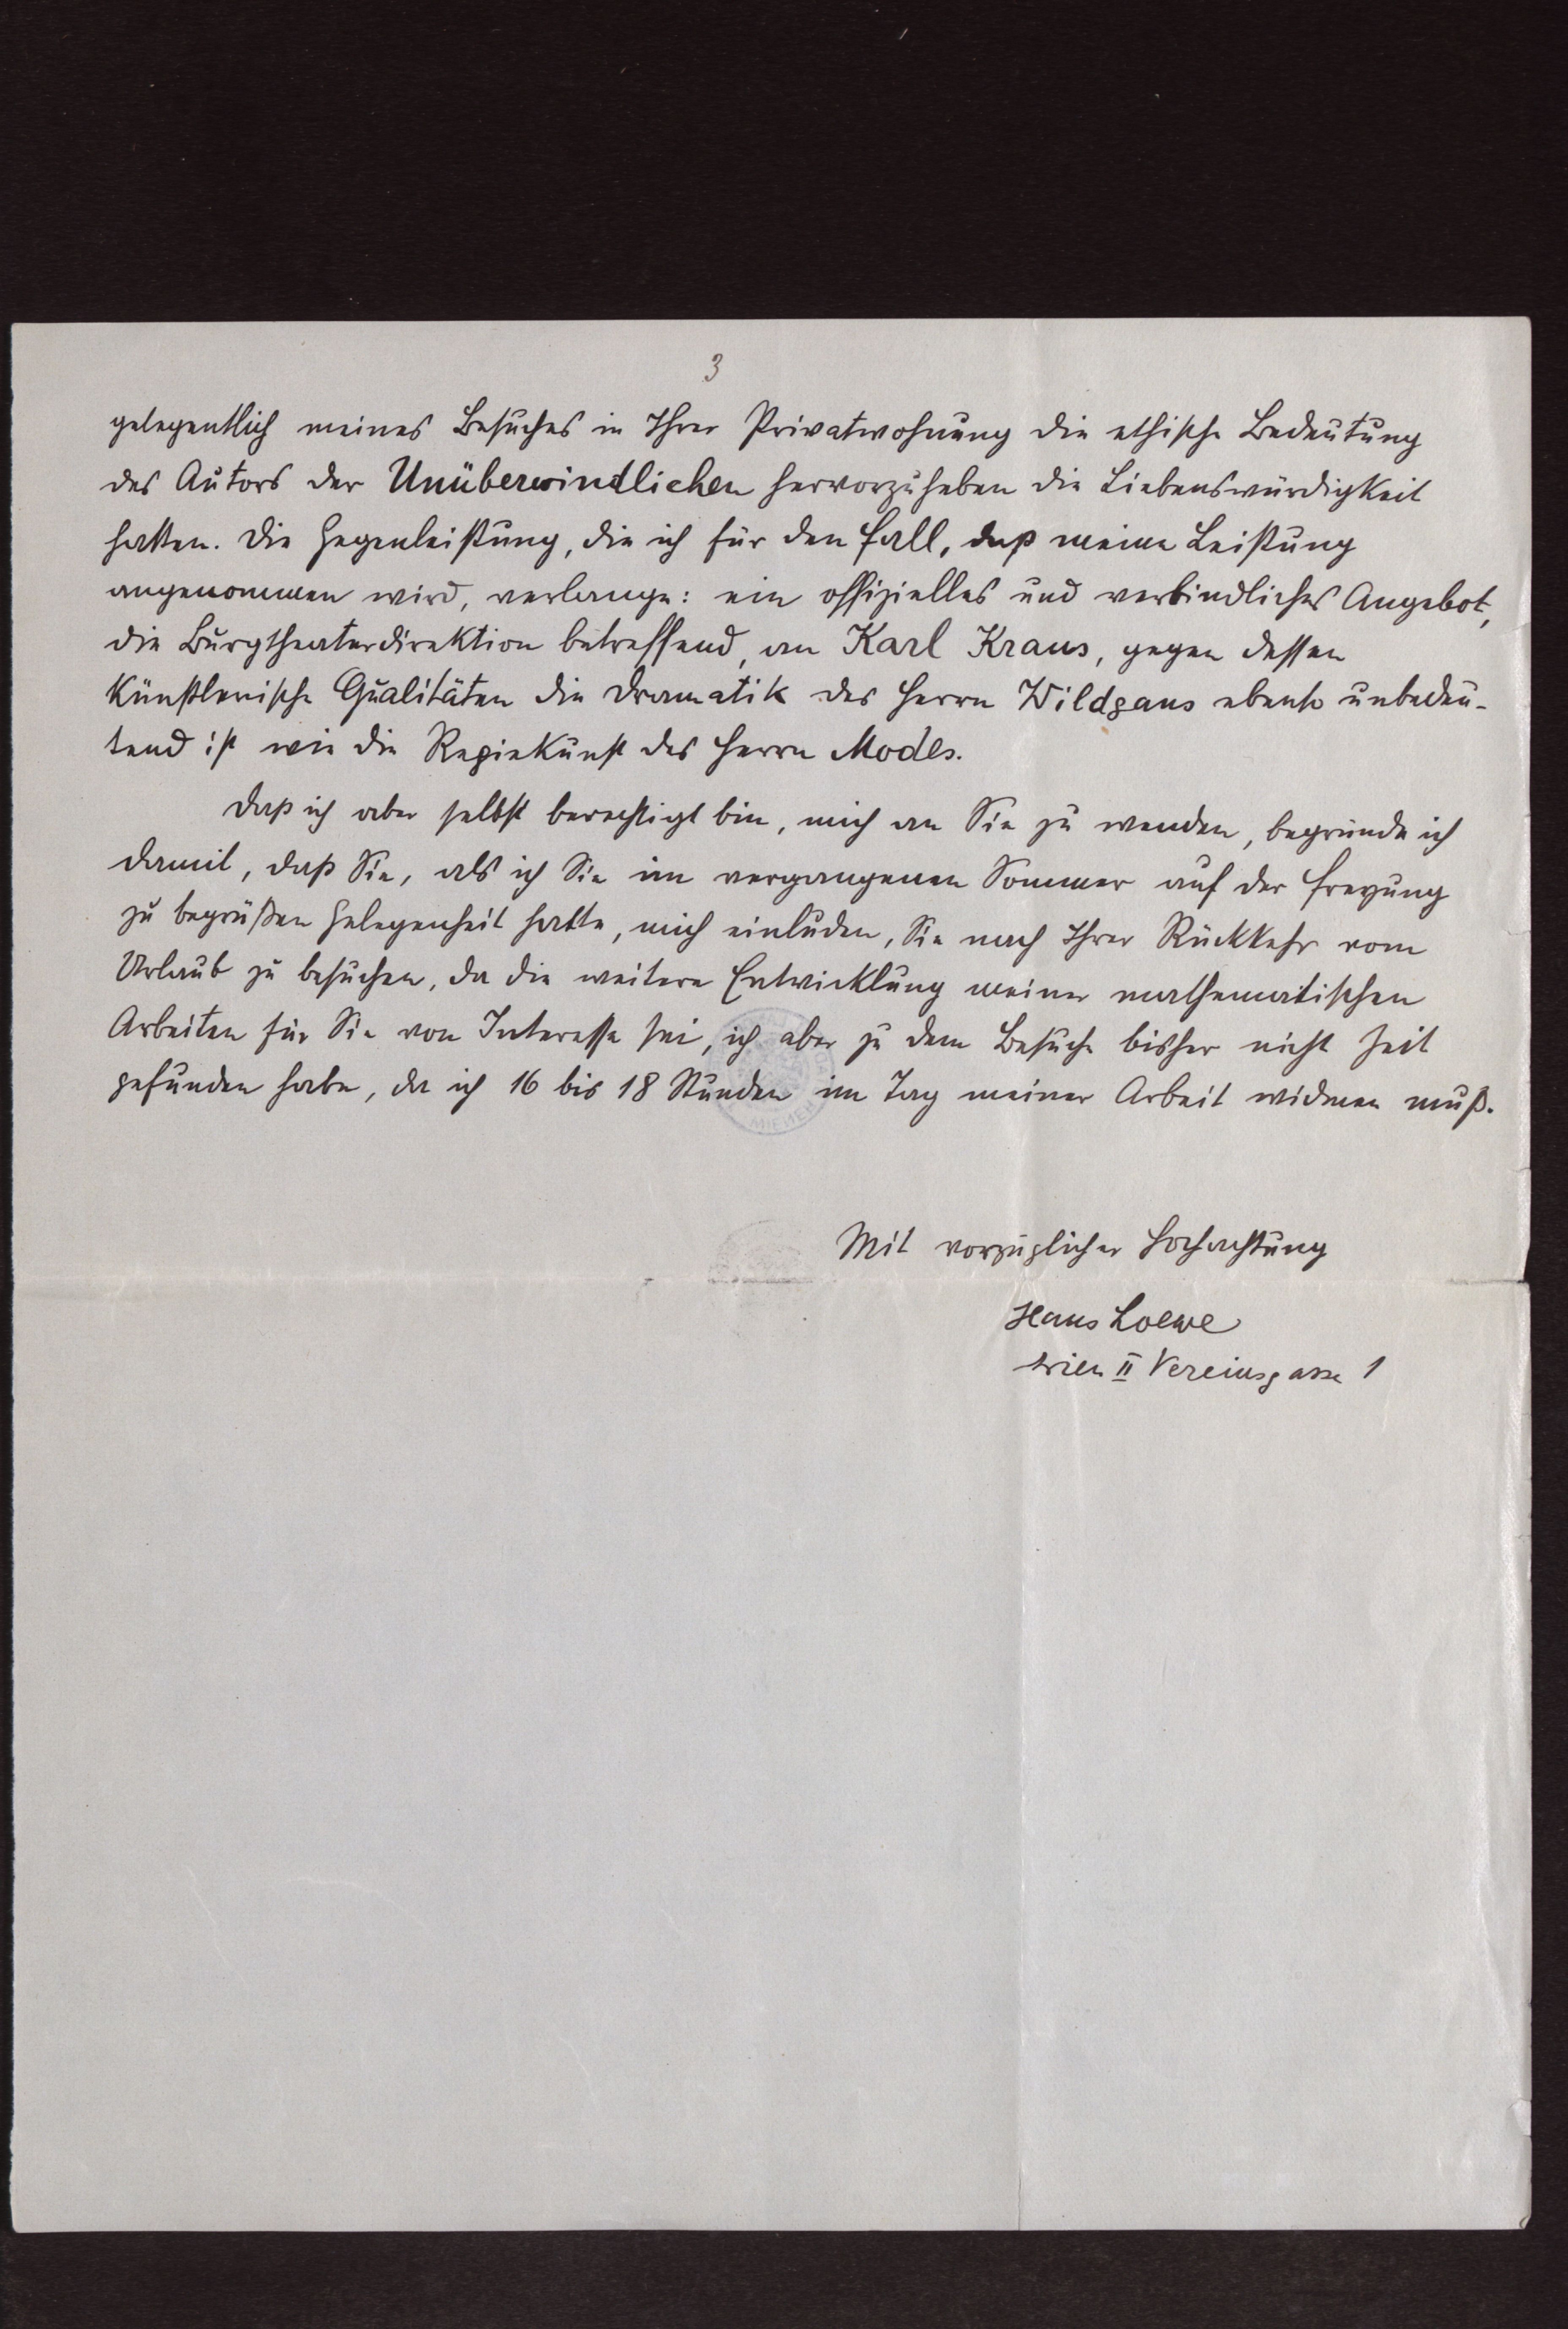 3
gelegentlich meines Besuches in Ihrer Privatwohnung die ethische Bedeutung
des Autors der Unüberwindlichen hervorzuheben die Liebenswürdigkeit
hatten. Die Gegenleistung, die ich für den Fall, daß meine Leistung
angenommen wird, verlange: ein offizielles und verbindliches Angebot,
die Burgtheaterdirektion betreffend, an Karl Kraus, gegen dessen
künstlerische Qualitäten die Dramatik des Herrn Wildgans ebenso unbedeu-
tend ist wie die Regiekunst des Herrn Modes.
Daß ich aber selbst berechtigt bin, mich an Sie zu wenden, begründe ich
damit, daß Sie, als ich Sie im vergangenen Sommer auf der Freyung
zu begrüßen Gelegenheit hatte, mich einluden, Sie nach Ihrer Rückkehr vom
Urlaub zu besuchen, da die weitere Entwicklung meiner mathematischen
Arbeiten für Sie von Interesse sei, ich aber zu dem Besuche bisher nicht Zeit
gefunden habe, da ich 16 bis 18 Stunden im Tag meiner Arbeit widmen muß.
Mit vorzüglicher Hochachtung
Hans Loewe
Wien II Vereinsgasse 1